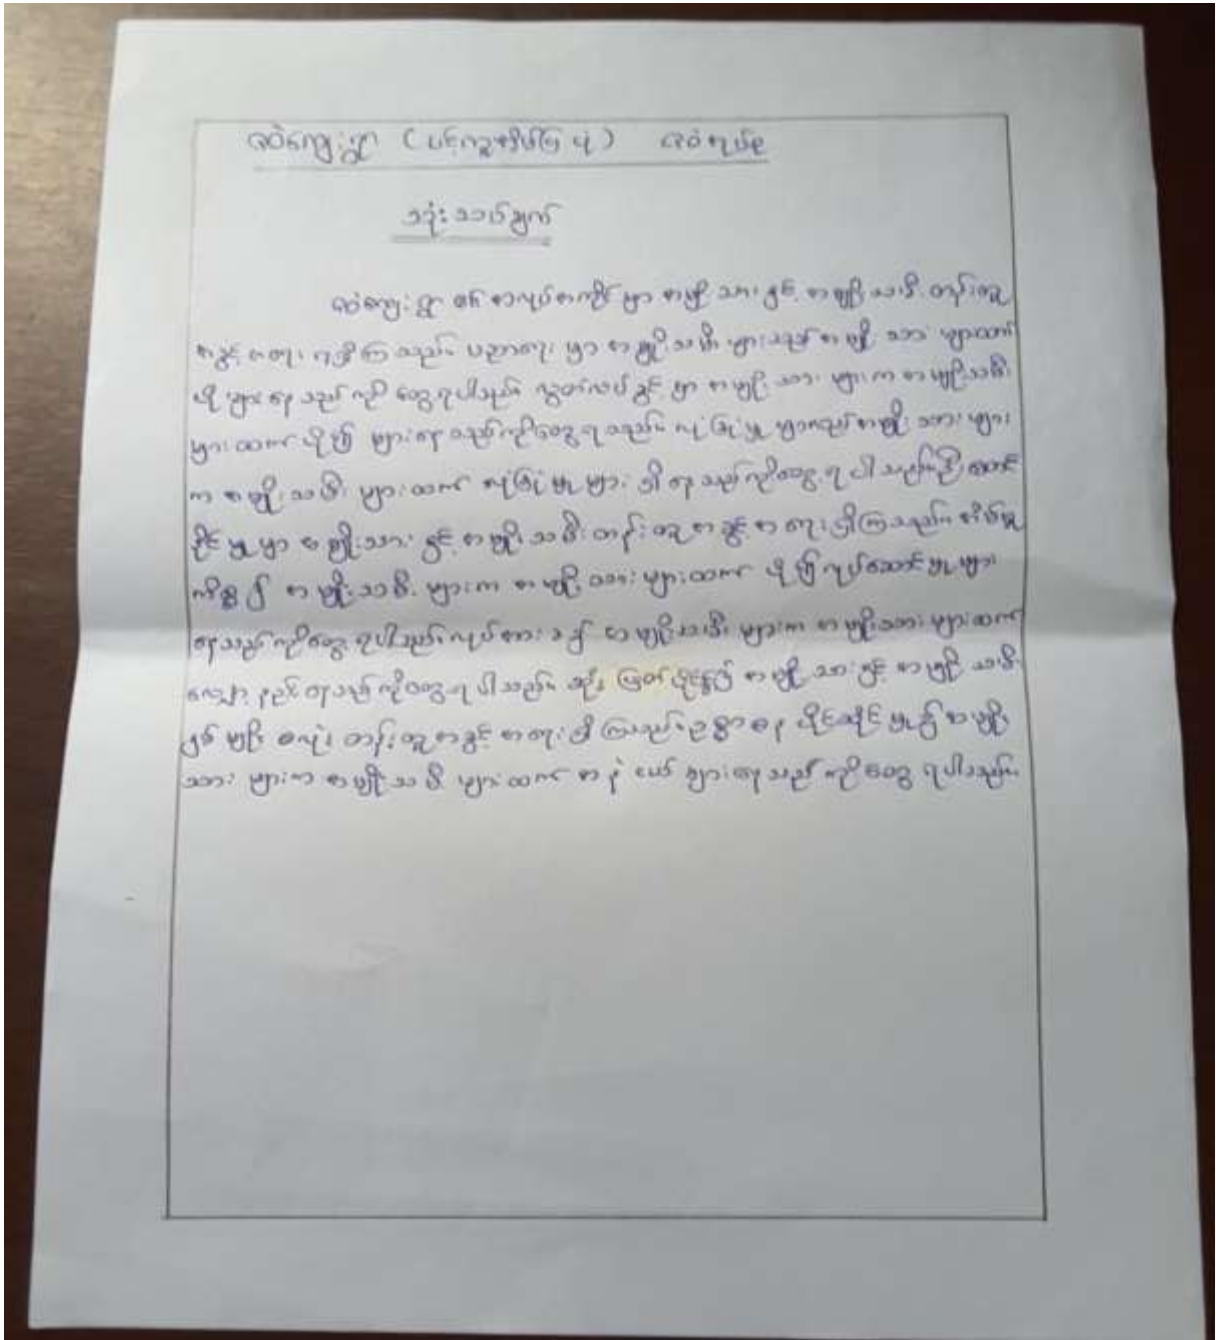 သုံးသပ်ချက်
မှာ အမျိုးသား နှင့် အမျိုးသမီး တန်းတူ
အခွင့် အရေး ရရှိကြ သည်။ ပညာရေး မှာ အမျိုးသမီး များသည် အမျိုး သား များထက်
ပို များ နေ သည် ကို တွေ့ရပါသည်။ လွတ်လပ် ခွင့် မှာ အမျိုး သား များ က အမျိုးသမီး
များ ထက် ပို၍ များနေ သည်ကိုတွေ့ရ သည်။ လုံခြုံမှု မှာလည်း အမျိုး သား များ
က အမျိုး သမီး များ ထက် လုံခြုံ မှု များ ရှိ နေ သည် ကို တွေ့ ရ ပါ သည်။ ပိုင်ဆောင်
နိုင် မှု မှာ အမျိုးသား နှင့် အမျိုး သမီး တန်း တူ အခွင့် အရေး ရှိကြ သည်။ အိမ်မှု
ကိစ္စ ၌ အမျိုး သမီး များက အမျိုး သား များထက် ပို၍ လုပ်ဆောင် မှု များ
နေ သည် ကို တွေ့ ရပါသည်။ လုပ်အား ခ ၌ အမျိုးသမီး များက အမျိုးသား များထက်
လျော့ နည်း နေသည် ကိုတွေ့ ရ ပါသည်။ ဆုံး ဖြတ် ပိုင်ခွင့်၌ အမျိုး သား နှင့် အမျိုး သမီး
နှစ် မျိုး စလုံး တန်း တူ အခွင့် အရေး ရှိ ကြသည်။ ဥစ္စာ ဓန ပိုင်ဆိုင် မှု ၌ အမျိုး
သား များက အမျိုး သ မီး များ ထက် အ နဲ ငယ် များနေ သည် ကို တွေ့ ရပါသည်။